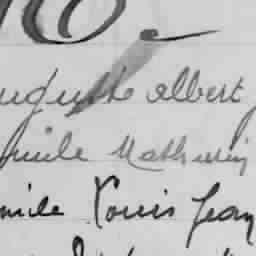 No.
uguste albert
mile Mathurin
mile Louis Jean